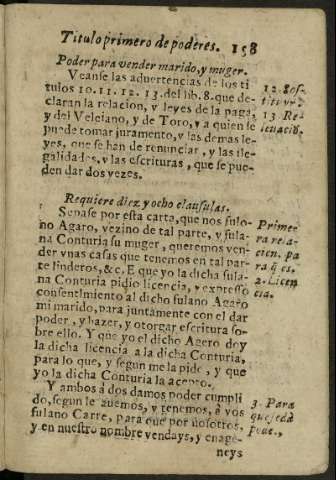 Titulo primero de poderes. 158
Poder para vender marido, y muger.
Veanse las aduertencias de los ti
tulos 10. 11. 12. 13. del lib. 8. que de-
claran la relacion, y leyes de la paga,
y del Veleiano, y de Toro, y a quien se
puede tomar juramento, y las demas le-
yes, que se han de renunciar, y las ile-
galidades, y las escrituras, que se pue-
den dar dos vezes.
12. Sos-
titucio
13 Re
uocació.
Requiere diez y ocho clausulas.
Sepase por esta carta, que nos fulo-
no Agaro, vezino de tal parte, y fula-
na Conturia su muger, queremos ven-
der vnas casas que tenemos en tal par-
te linderos, &c. E que yo la dicha fula-
na Conturia pidio licencia, y expresso
consentimiento al dicho fulano Agaro
mi marido, para juntamente con el dar
poder, y hazer, y otorgar escritura so-
bre ello. Y que yo el dicho Agero doy
la dicha licencia a la dicha Conturia,
para lo que, y segun me la pide, y que
yo la dicha Conturia la acepto.
Y ambos a dos damos poder cumpli
do, segun le auemos, y tenemos, a vos
fulano Carre, para que por nosotros,
y en nuestro nombre vendays, y enage-
neys
Primer
ra rela-
cien. pa
ra q̃ es.
2. Licen
cia.
3. Para
que se dà